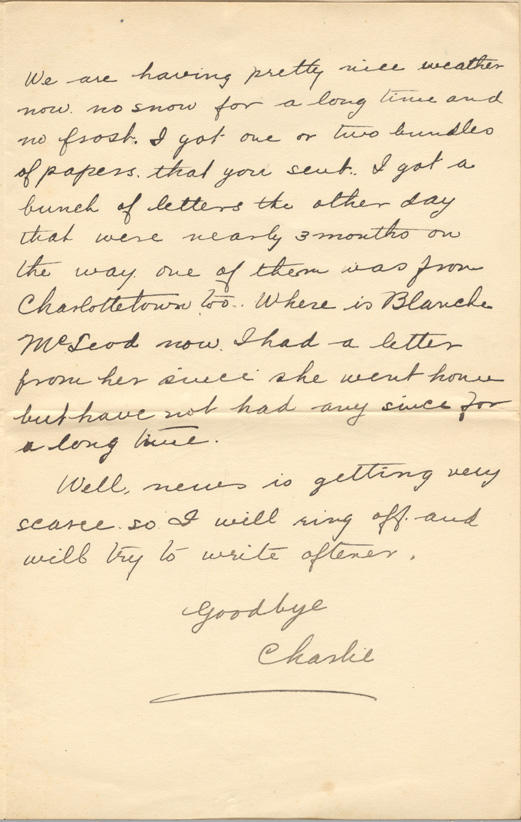 We are having pretty nice weather
now. no snow for a long time and
no frost. I got one or two bundles
of papers. that you sent. I got a
bunch of letters the other day
that were nearly 3 months on
the way one of them was from
Charlottetown too. Where is Blanche
McLeod now. I had a letter
from her since she went home
but have not had any since for
a long time.
Well, news is getting very
scarce so I will ring off and
will try to write oftener.
Goodbye
Charlie